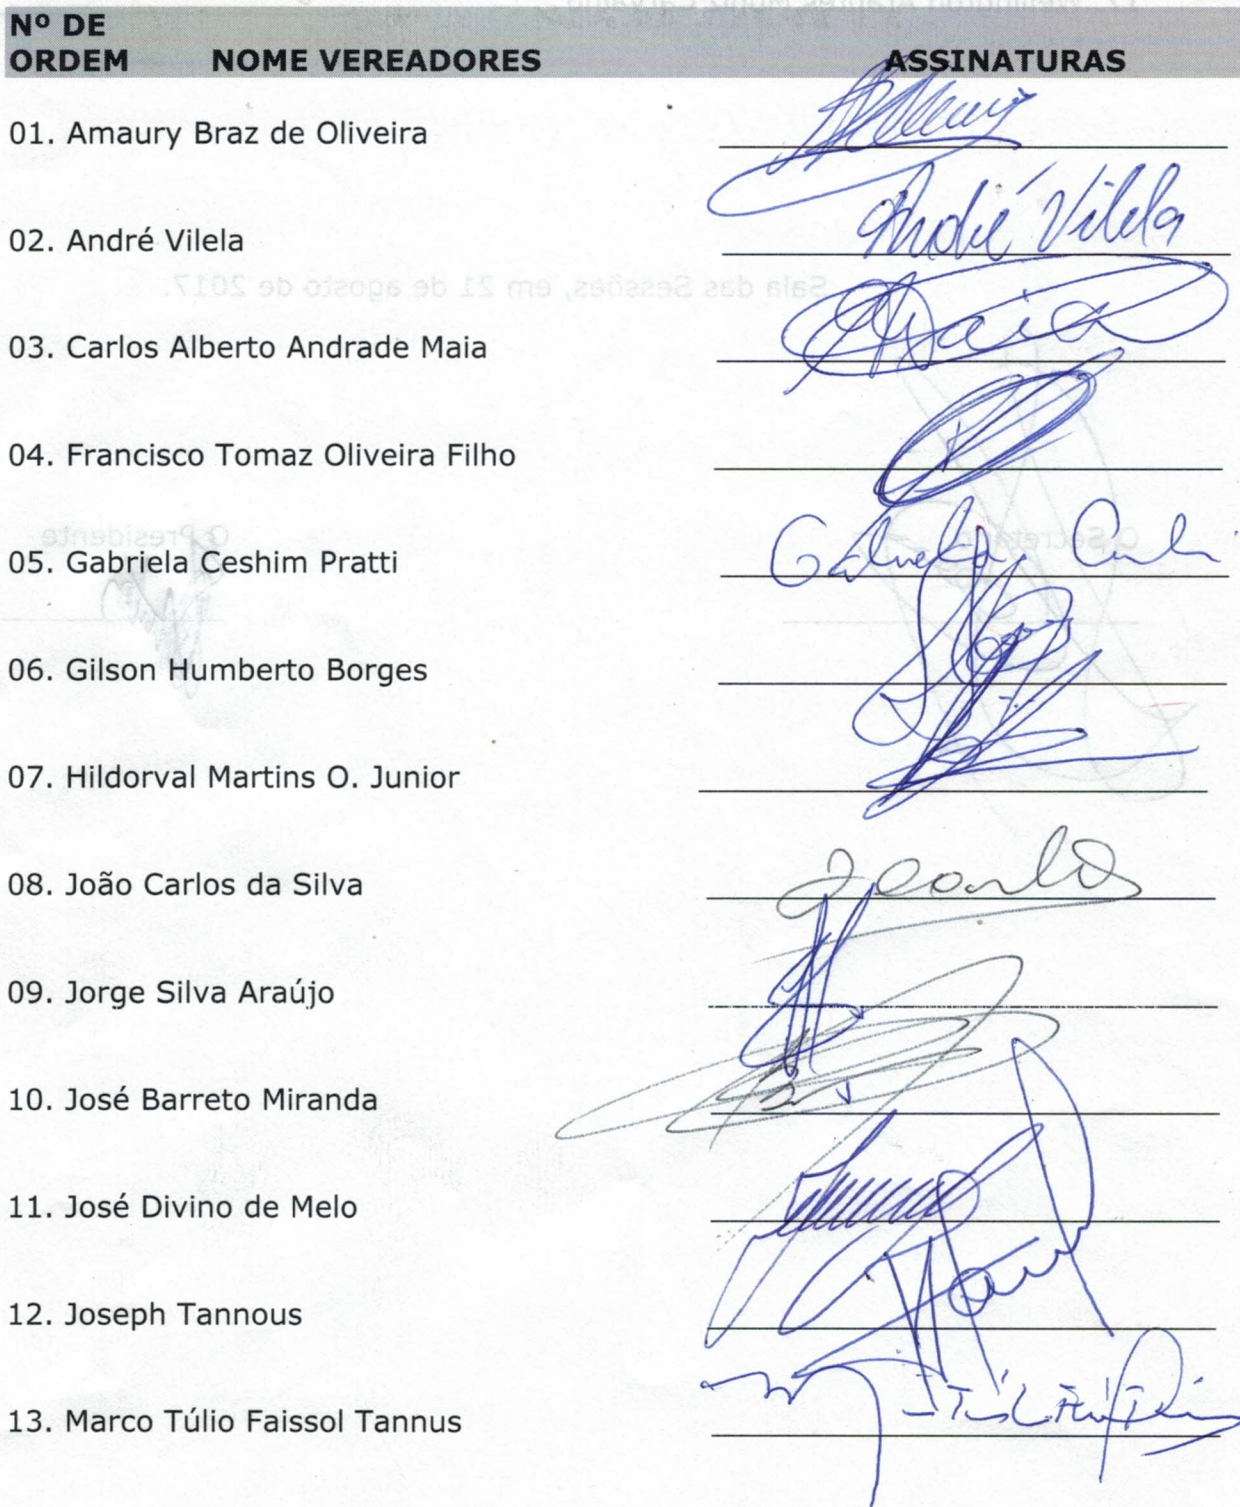 Nº DE
ORDEM NOME VEREADORES ASSINATURAS
01. Amaury Braz de Oliveira
02. André Vilela André Vilela
03. Carlos Alberto Andrade Maia
04. Francisco Tomaz Oliveira Filho
05. Gabriela Ceshim Pratti
06. Gilson Humberto Borges
07. Hildorval Martins O. Junior
08. João Carlos da Silva
09. Jorge Silva Araújo
10. José Barreto Miranda
11. José Divino de Melo
12. Joseph Tannous
13. Marco Túlio Faissol Tannus
Sala das Sessões, em 21 de agosto de 2017.
O Presidente
O Secretário